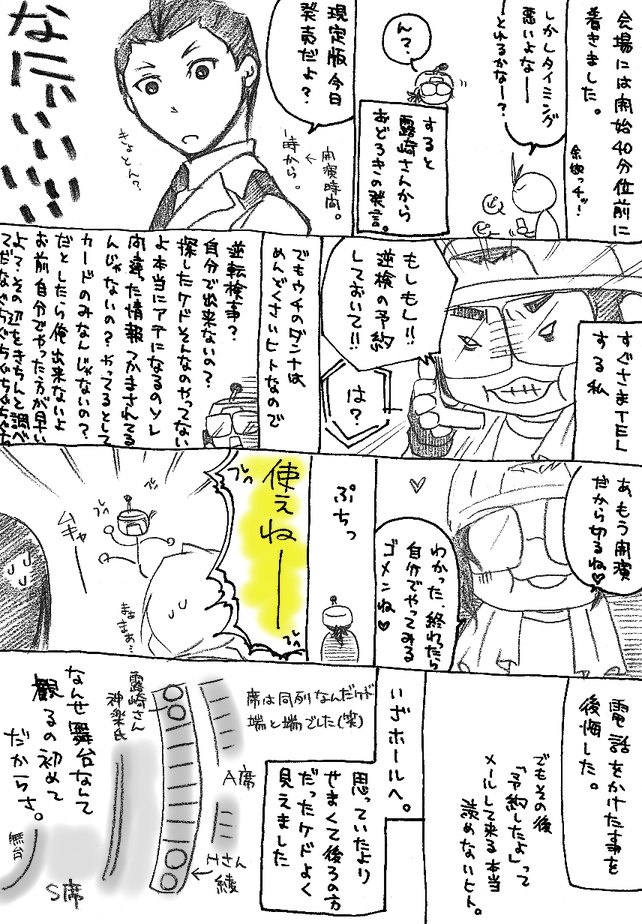 会場には開始40分位前に
着きました。
余裕っチッ!
しかしタイミング
悪いよなー
とれるかなー?
ん?
すると
霧崎さんから
おどろきの発言。
現定版今日
発売だよ?
1時から。
←開演時間。
きょとん?
なにィいいい!!!
すぐさまTEL
する私
もしもし!!
逆検の予約
しておいて!!
は?
でもウチのダンナは
めんどくさいヒトなので
逆転検事?
自分で出来ないの?
探したケドそんなのやってない
よ本当にアテになるのソレ
間違った情報つかまされてる
んじゃないの?やってるとして
カードのみなんじゃないの?
だとしたら俺出来ないよ
お前自分でやった方が早い
よ?その辺をきちんと調べ
あ、もう開演
だから切るね♥
わかった、終れたら
自分でやってみる
ゴメンね♥
ぷちっ
使えねーー
ブッ
ブッ
ブッ
ムキャー
まぁまぁ…
電話をかけた事を
後悔した。
でもその後
「予約したよ」って
メールして来る本当
読めないヒト。
いざホールへ。
思っていたより
せまくて後ろの方
だったケドよく
見えました
席は同列なんだケド
端と端でした(笑)
A席
←Hさん
綾
霧崎さん
神楽氏
S席
舞台
なんせ舞台なんて
観るの初めて
だからさ。